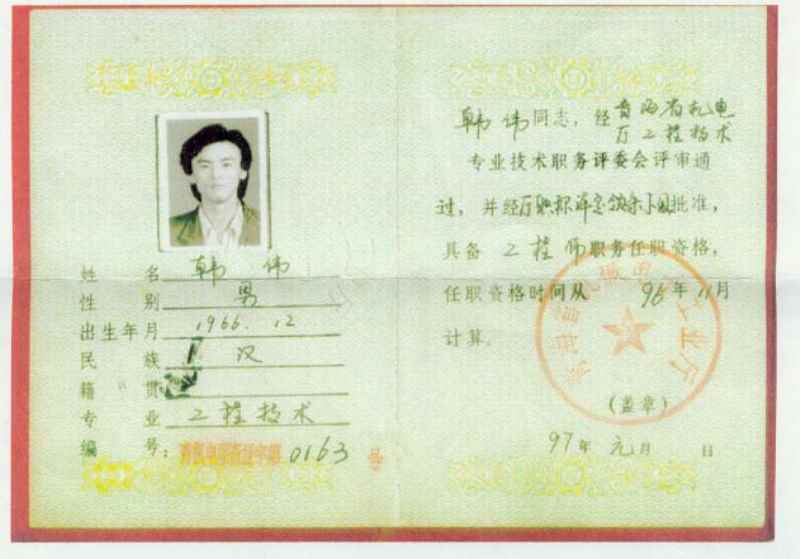 姓名 韩伟
性别 男
出生年月 1966.12
民族 汉
籍贯
专业 工程技术
编号: 0163 号
韩伟同志，经青海省机电
厅工程技术
专业技术职务评委会评审通
过，并经厅职称评定领导小组批准，
具备 工程师职务任职资格，
任职资格时间从 96年11月
计算。
(盖章)
97年元月 日